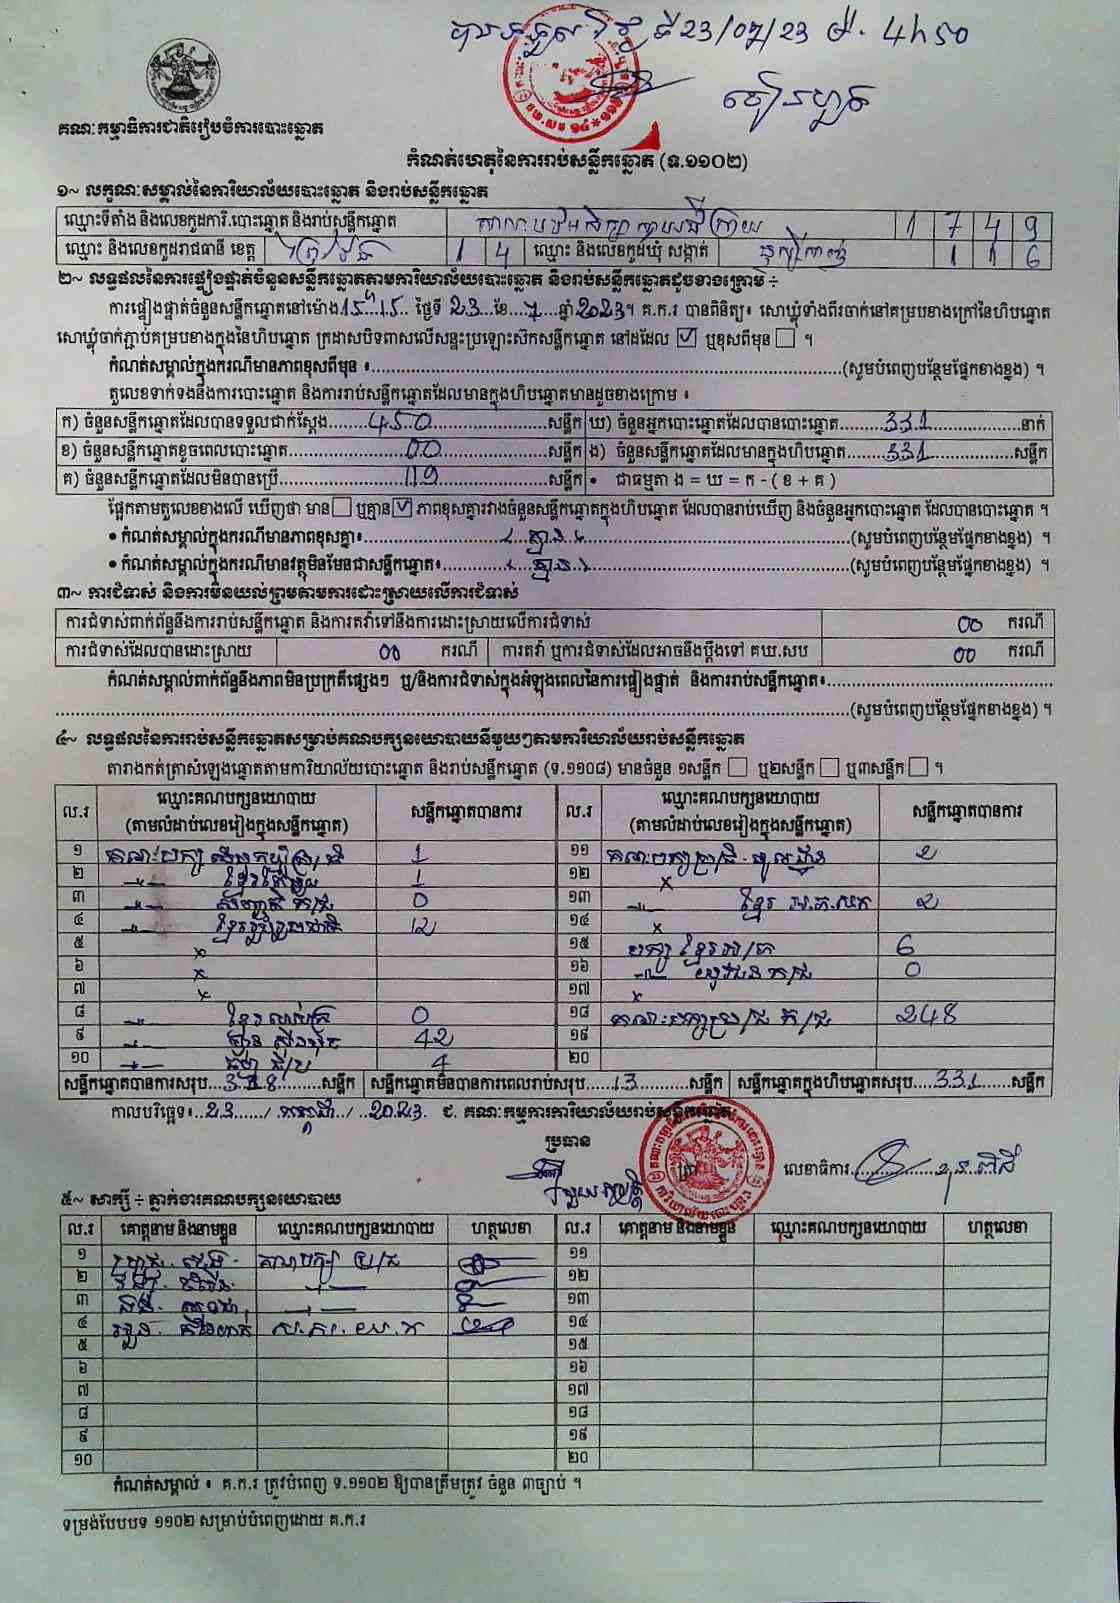 បានទទួល ថ្ងៃទី 23/07/23 ម៉. 4h50
គណៈកម្មាធិការជាតិរៀបចំការបោះឆ្នោត
កំណត់ហេតុនៃការរាប់សន្លឹកឆ្នោត (ទ.១១០២)
១~ លក្ខណៈសម្គាល់នៃការិយាល័យបោះឆ្នោត និងរាប់សន្លឹកឆ្នោត
ឈ្មោះទីតាំង និងលេខកូដការិ.បោះឆ្នោត និងរាប់សន្លឹកឆ្នោត 1 7 4 9
ឈ្មោះ និងលេខកូដរាជធានី ខេត្ត ព្រៃវែង 1 4 ឈ្មោះ និងលេខកូដឃុំ សង្កាត់ 1 1 6
២~ លទ្ធផលនៃការផ្ទៀងផ្ទាត់ចំនួនសន្លឹកឆ្នោតតាមការិយាល័យបោះឆ្នោត និងរាប់សន្លឹកឆ្នោតដូចខាងក្រោម ÷
ការផ្ទៀងផ្ទាត់ចំនួនសន្លឹកឆ្នោតនៅម៉ោង 15h15 ថ្ងៃទី 23 ខែ 7 ឆ្នាំ 2023។ គ.ក.រ បានពិនិត្យ៖ សោឃ្លុំទាំងពីរចាក់នៅគម្របខាងក្រៅនៃហិបឆ្នោត
សោឃ្លុំចាក់ភ្ជាប់គម្របខាងក្នុងនៃហិបឆ្នោត ក្រដាសបិទពាសលើសន្ទះប្រឡោះស៊កសន្លឹកឆ្នោត នៅដដែល ☑ ឬខុសពីមុន ☐ ។
កំណត់សម្គាល់ក្នុងករណីមានភាពខុសពីមុន ៖ (សូមបំពេញបន្ថែមផ្នែកខាងខ្នង) ។
តួលេខទាក់ទងនឹងការបោះឆ្នោត និងការរាប់សន្លឹកឆ្នោតដែលមានក្នុងហិបឆ្នោតមានដូចខាងក្រោម ៖
ក) ចំនួនសន្លឹកឆ្នោតដែលបានទទួលជាក់ស្តែង 450 សន្លឹក ឃ) ចំនួនអ្នកបោះឆ្នោតដែលបានបោះឆ្នោត 331 នាក់
ខ) ចំនួនសន្លឹកឆ្នោតខូចពេលបោះឆ្នោត 00 សន្លឹក ង) ចំនួនសន្លឹកឆ្នោតដែលមានក្នុងហិបឆ្នោត 331 សន្លឹក
គ) ចំនួនសន្លឹកឆ្នោតដែលមិនបានប្រើ 119 សន្លឹក • ជាធម្មតា ង = ឃ = ក - ( ខ + គ )
ផ្អែកតាមតួលេខខាងលើ ឃើញថា មាន ☐ ឬគ្មាន ☑ ភាពខុសគ្នារវាងចំនួនសន្លឹកឆ្នោតក្នុងហិបឆ្នោត ដែលបានរាប់ឃើញ និងចំនួនអ្នកបោះឆ្នោត ដែលបានបោះឆ្នោត ។
• កំណត់សម្គាល់ក្នុងករណីមានភាពខុសគ្នា៖ គ្មាន (សូមបំពេញបន្ថែមផ្នែកខាងខ្នង) ។
• កំណត់សម្គាល់ក្នុងករណីមានវត្ថុមិនមែនជាសន្លឹកឆ្នោត៖ គ្មាន (សូមបំពេញបន្ថែមផ្នែកខាងខ្នង) ។
៣~ ការជំទាស់ និងការមិនយល់ព្រមតាមការដោះស្រាយលើការជំទាស់
ការជំទាស់ពាក់ព័ន្ធនឹងការរាប់សន្លឹកឆ្នោត និងការតវ៉ាទៅនឹងការដោះស្រាយលើការជំទាស់ 00 ករណី
ការជំទាស់ដែលបានដោះស្រាយ 00 ករណី ការតវ៉ា ឬការជំទាស់ដែលអាចនឹងប្តឹងទៅ គឃ.សប 00 ករណី
កំណត់សម្គាល់ពាក់ព័ន្ធនឹងភាពមិនប្រក្រតីផ្សេងៗ ឬ/និងការជំទាស់ក្នុងអំឡុងពេលនៃការផ្ទៀងផ្ទាត់ និងការរាប់សន្លឹកឆ្នោត៖
(សូមបំពេញបន្ថែមផ្នែកខាងខ្នង) ។
៤~ លទ្ធផលនៃការរាប់សន្លឹកឆ្នោតសម្រាប់គណបក្សនយោបាយនីមួយៗតាមការិយាល័យរាប់សន្លឹកឆ្នោត
តារាងកត់ត្រាសំឡេងឆ្នោតតាមការិយាល័យបោះឆ្នោត និងរាប់សន្លឹកឆ្នោត (ទ.១១០៨) មានចំនួន ១សន្លឹក ☐ ឬ២សន្លឹក ☐ ឬ៣សន្លឹក ☐ ។
ល.រ ឈ្មោះគណបក្សនយោបាយ (តាមលំដាប់លេខរៀងក្នុងសន្លឹកឆ្នោត) សន្លឹកឆ្នោតបានការ ល.រ ឈ្មោះគណបក្សនយោបាយ (តាមលំដាប់លេខរៀងក្នុងសន្លឹកឆ្នោត) សន្លឹកឆ្នោតបានការ
១ គណៈបក្ស 1 ១១ គណៈបក្ស 2
២ 1 ១២ x
៣ 0 ១៣ ខ្មែរ 2
៤ ខ្មែររួបរួមជាតិ 12 ១៤ x
៥ x ១៥ បក្ស ខ្មែរ 6
៦ x ១៦ 0
៧ x ១៧ x
៨ ខ្មែរ 0 ១៨ គណៈបក្ស 248
៩ 42 ១៩
១០ 4 ២០
សន្លឹកឆ្នោតបានការសរុប 318 សន្លឹក សន្លឹកឆ្នោតមិនបានការពេលរាប់សរុប 13 សន្លឹក សន្លឹកឆ្នោតក្នុងហិបឆ្នោតសរុប 331 សន្លឹក
កាលបរិច្ឆេទ៖ 23 / កក្កដា / 2023 ជ. គណៈកម្មការការិយាល័យរាប់សន្លឹកឆ្នោត
ប្រធាន
លេខាធិការ
៥~ សាក្សី ÷ ភ្នាក់ងារគណបក្សនយោបាយ
ល.រ គោត្តនាម និងនាមខ្លួន ឈ្មោះគណបក្សនយោបាយ ហត្ថលេខា ល.រ គោត្តនាម និងនាមខ្លួន ឈ្មោះគណបក្សនយោបាយ ហត្ថលេខា
១ គណបក្ស ១១
២ ១២
៣ ១៣
៤ ១៤
៥ ១៥
៦ ១៦
៧ ១៧
៨ ១៨
៩ ១៩
១០ ២០
កំណត់សម្គាល់ ៖ គ.ក.រ ត្រូវបំពេញ ទ.១១០២ ឱ្យបានត្រឹមត្រូវ ចំនួន ៣ច្បាប់ ។
ទម្រង់បែបបទ ១១០២ សម្រាប់បំពេញដោយ គ.ក.រ